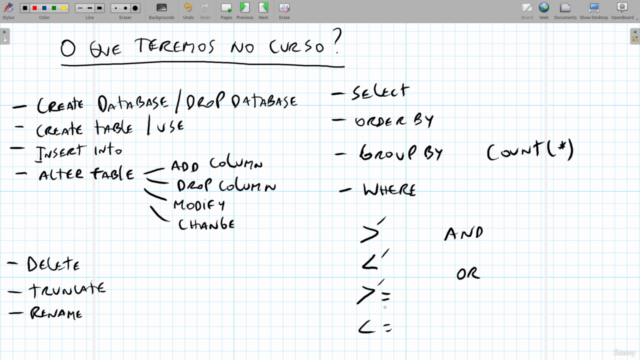 Stylus Color Line Eraser Backgrounds Undo Redo Pages Previous Next Erase Board Web Documents Show Desktop OpenBoard
O QUE TEREMOS NO CURSO?
- CREATE DATABASE / DROP DATABASE
- CREATE TABLE / USE
- INSERT INTO
- ALTER TABLE - ADD COLUMN
- DROP COLUMN
- MODIFY
- CHANGE
- DELETE
- TRUNCATE
- RENAME
- SELECT
- ORDER BY
- GROUP BY COUNT(*)
- WHERE
> AND
<
OR
>=
<=